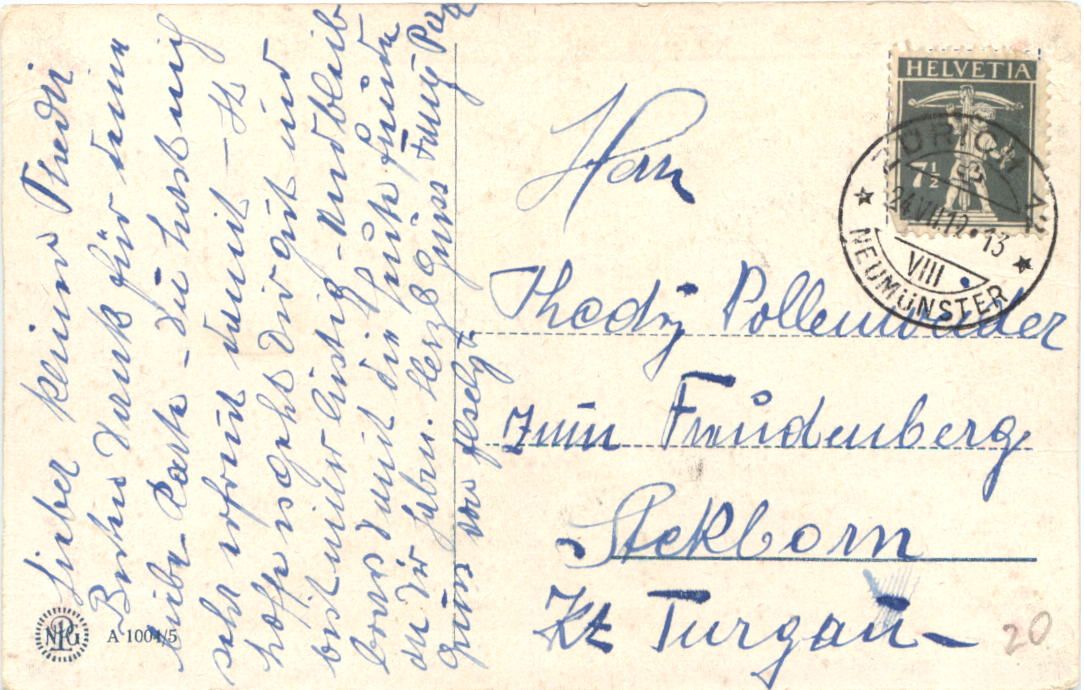 Lieber kleiner Thedi
Besten Dank für deine
liebe Karte - Du hast mich
sehr erfreut damit - Ich
hoffe es geht Dir gut und
bist immer lustig - Und bleib
brav damit die Leute Freude
an Dir haben. Herzl Grüss
Gruss von
Herrn
Thedy Pollenweider
zum Freudenberg
Stekborn
Kt Turgau
HELVETIA
7½
ZÜRICH 12
24.VII.12•13
VIII
NEUMÜNSTER
NPG
A 1004/5
20